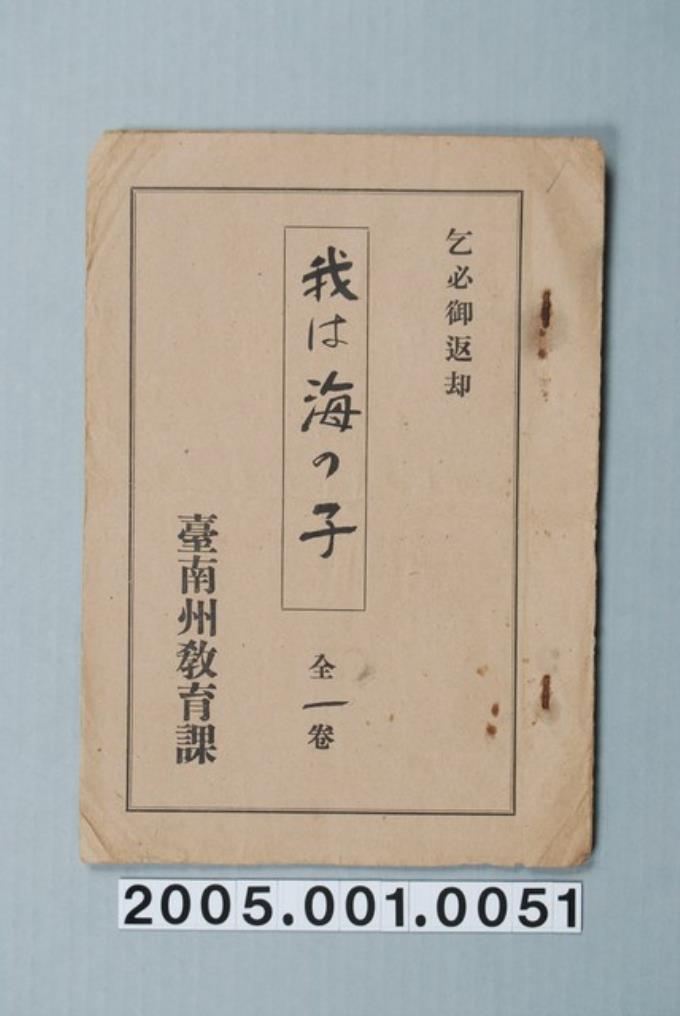 乞必御返却
我は海の子
全一卷
臺南州敎育課
2005.001.0051